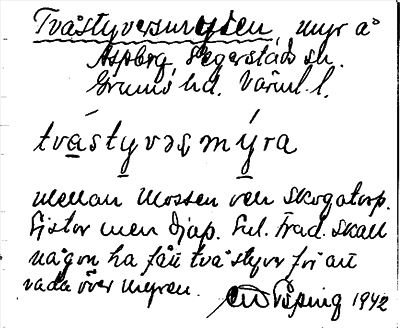 Tvåstyversmyren, myr å
Aspberg Segerstads sn.
Grums hd. Värml. l.
tvástyvəsmýra
Mellan Mossen och Skogatorp.
Ej stor men djup. Enl. Trad. skall
någon ha fått två styver för att
vada över myren.
1942